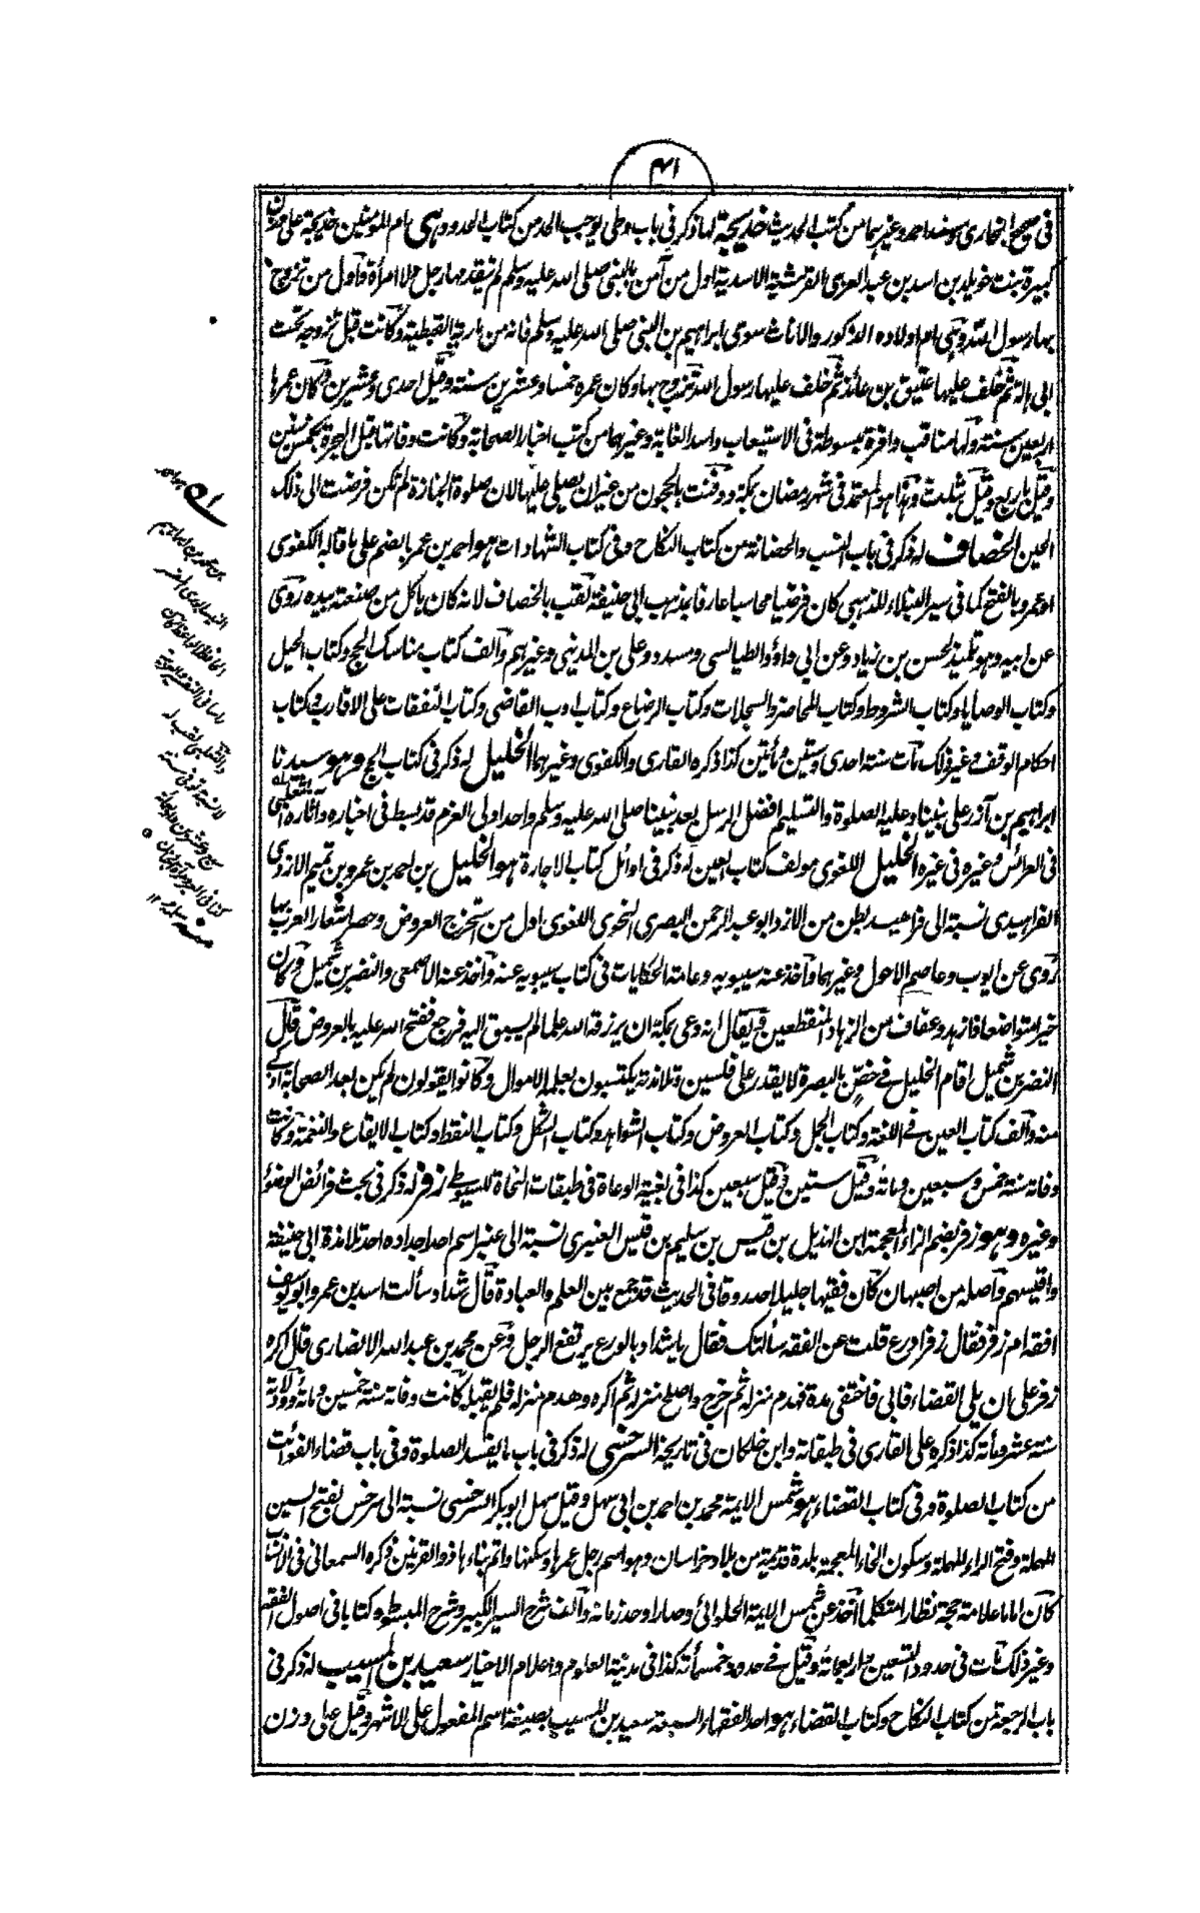 ۴۱
فی صحیح البخاری ومسند احمد وغیرہما من کتب الحدیث خدیجۃ لہا ذکر فی باب وطی یوجب الحد من کتاب الحدود وہی ام المؤمنین خدیجۃ علی وزن
کبیرۃ بنت خویلد بن اسد بن عبد العزی القرشیۃ الاسدیۃ اول من آمن بالنبی صلی اللہ علیہ وسلم لم یتقدمہا رجل ولا امرأۃ واول من تزوج
بہا رسول اللہ وہی ام اولادہ الذکور والاناث سوی ابراہیم بن النبی صلی اللہ علیہ وسلم فانہ من ماریۃ القبطیۃ وکانت قبل تزوجہ تحت
ابی ہالۃ ثم خلف علیہا عتیق بن عائذ ثم خلف علیہا رسول اللہ تزوج بہا وکان عمرہ خمسا وعشرین سنۃ وقیل احدی وعشرین وکان عمرہا
اربعین سنۃ ولہا مناقب وافرۃ مبسوطۃ فی الاستیعاب واسد الغابۃ وغیرہما من کتب اخبار الصحابۃ وکانت وفاتہا قبل الہجرۃ بخمس سنین
وقیل باربع وقیل بثلث وہذا ہو المعتمد فی شہر رمضان بمکۃ ودفنت بالحجون من غیر ان یصلی علیہا لان صلوۃ الجنازۃ لم تکن فرضت الی ذلک
الحین الخصاف لہ ذکر فی باب النسب والحضانۃ من کتاب النکاح وفی کتاب الشہادات ہو احمد بن عمر بالضم علی ما قالہ الکفوی
او عمرو بالفتح کما فی سیر النبلاء للذہبی کان فرضیا محاسبا عارفا بمذہب ابی حنیفۃ لقب بالخصاف لانہ کان یاکل من صنعتہ بیدہ روی
عن ابیہ وہو تلمیذ الحسن بن زیاد وعن ابی داؤد الطیالسی ومسدد وعلی بن المدینی وغیرہم والف کتاب مناسک الحج وکتاب الحیل
وکتاب الوصایا وکتاب الشروط وکتاب المحاضر والسجلات وکتاب الرضاع وکتاب ادب القاضی وکتاب النفقات علی الاقارب وکتاب
احکام الوقف وغیر ذلک مات سنۃ احدی وستین ومأتین کذا ذکرہ القاری والکفوی وغیرہما الخلیل لہ ذکر فی کتاب الحج وہو سیدنا
ابراہیم بن آزر علی نبینا وعلیہ الصلوۃ والتسلیم افضل الرسل بعد نبینا صلی اللہ علیہ وسلم واحد اولی العزم قد بسط فی اخبارہ وآثارہ الثعلبی
فی العرائس وغیرہ فی غیرہ الخلیل اللغوی مولف کتاب العین لہ ذکر فی اوائل کتاب الاجارۃ ہو الخلیل بن احمد بن عمرو بن تمیم الازدی
الفراہیدی نسبۃ الی فراہید بطن من الازد ابو عبد الرحمن البصری النحوی اللغوی اول من استخرج العروض وحصر اشعار العرب بہا
روی عن ایوب وعاصم الاحول وغیرہما واخذ عنہ سیبویہ وعامۃ الحکایات فی کتاب سیبویہ عنہ واخذ عنہ الاصمعی والنضر بن شمیل وکان
خیرا متواضعا ذا زہد وعفاف من الزہاد المنقطعین ویقال انہ دعی بمکۃ ان یرزقہ اللہ علما لم یسبق الیہ فرجع ففتح اللہ علیہ بالعروض قال
النضر بن شمیل اقام الخلیل فی خص بالبصرۃ لا یقدر علی فلسین وتلامذتہ یکتسبون بعلمہ الاموال وکانوا یقولون لم یکن بعد الصحابۃ اذکی
منہ والف کتاب العین فی اللغۃ وکتاب الجمل وکتاب العروض وکتاب الشواہد وکتاب الشکل وکتاب النقط وکتاب الایقاع والنغمۃ وکانت
وفاتہ سنۃ خمس وسبعین ومائۃ وقیل ستین وقیل سبعین کذا فی بغیۃ الوعاۃ فی طبقات النحاۃ للسیوطی زفر لہ ذکر فی بحث فرائض الوضوء
وغیرہ وہو زفر بضم الزاء المعجمۃ ابن الہذیل بن قیس بن سلیم بن قیس العنبری نسبۃ الی عنبر اسم احد اجدادہ احد تلامذۃ ابی حنیفۃ
واقیسہم واصلہ من اصبہان کان فقیہا جلیلا صدوقا فی الحدیث قد جمع بین العلم والعبادۃ قال شداد سألت اسد بن عمرو ابو یوسف
افقہ ام زفر فقال زفر اورع قلت عن الفقہ سألتک فقال یا شداد بالورع یرتفع الرجل وعن محمد بن عبد اللہ الانصاری قال اکرہ
زفر علی ان یلی القضاء فابی فاختفی مدۃ فہدم منزلہ ثم خرج واصلح منزلہ ثم اکرہ وہدم منزلہ فلم یقبلہ کانت وفاتہ سنۃ خمسین ومائۃ وولادتہ
سنۃ عشر ومأۃ کذا ذکرہ علی القاری فی طبقاتہ وابن خلکان فی تاریخہ السرخسی لہ ذکر فی باب ما یفسد الصلوۃ وفی باب قضاء الفوائت
من کتاب الصلوۃ وفی کتاب القضاء ہو شمس الایمۃ محمد بن احمد بن ابی سہل وقیل سہل ابوبکر السرخسی نسبۃ الی سرخس بفتح السین
المہملۃ وفتح الراء المہملۃ وسکون الخاء المعجمۃ بلدۃ قدیمۃ من بلاد خراسان وہو اسم رجل عمرہا وسکنہا واتم بناءہا ذو القرنین ذکرہ السمعانی فی الانساب
کان اماما علامۃ حجۃ نظارا متکلما اخذ عن شمس الایمۃ الحلوائی وصار اوحد زمانہ والف شرح السیر الکبیر وشرح المبسوط وکتابا فی اصول الفقہ
وغیر ذلک مات فی حدود التسعین واربعمائۃ وقیل فی حدود خمسمأتہ کذا فی مدینۃ العلوم واعلام الاخیار سعید بن المسیب لہ ذکر فی
باب الرجعۃ من کتاب النکاح وکتاب القضاء ہو احد الفقہاء السبعۃ سعید بن المسیب بصیغۃ اسم المفعول علی الاشہر وقیل علی وزن